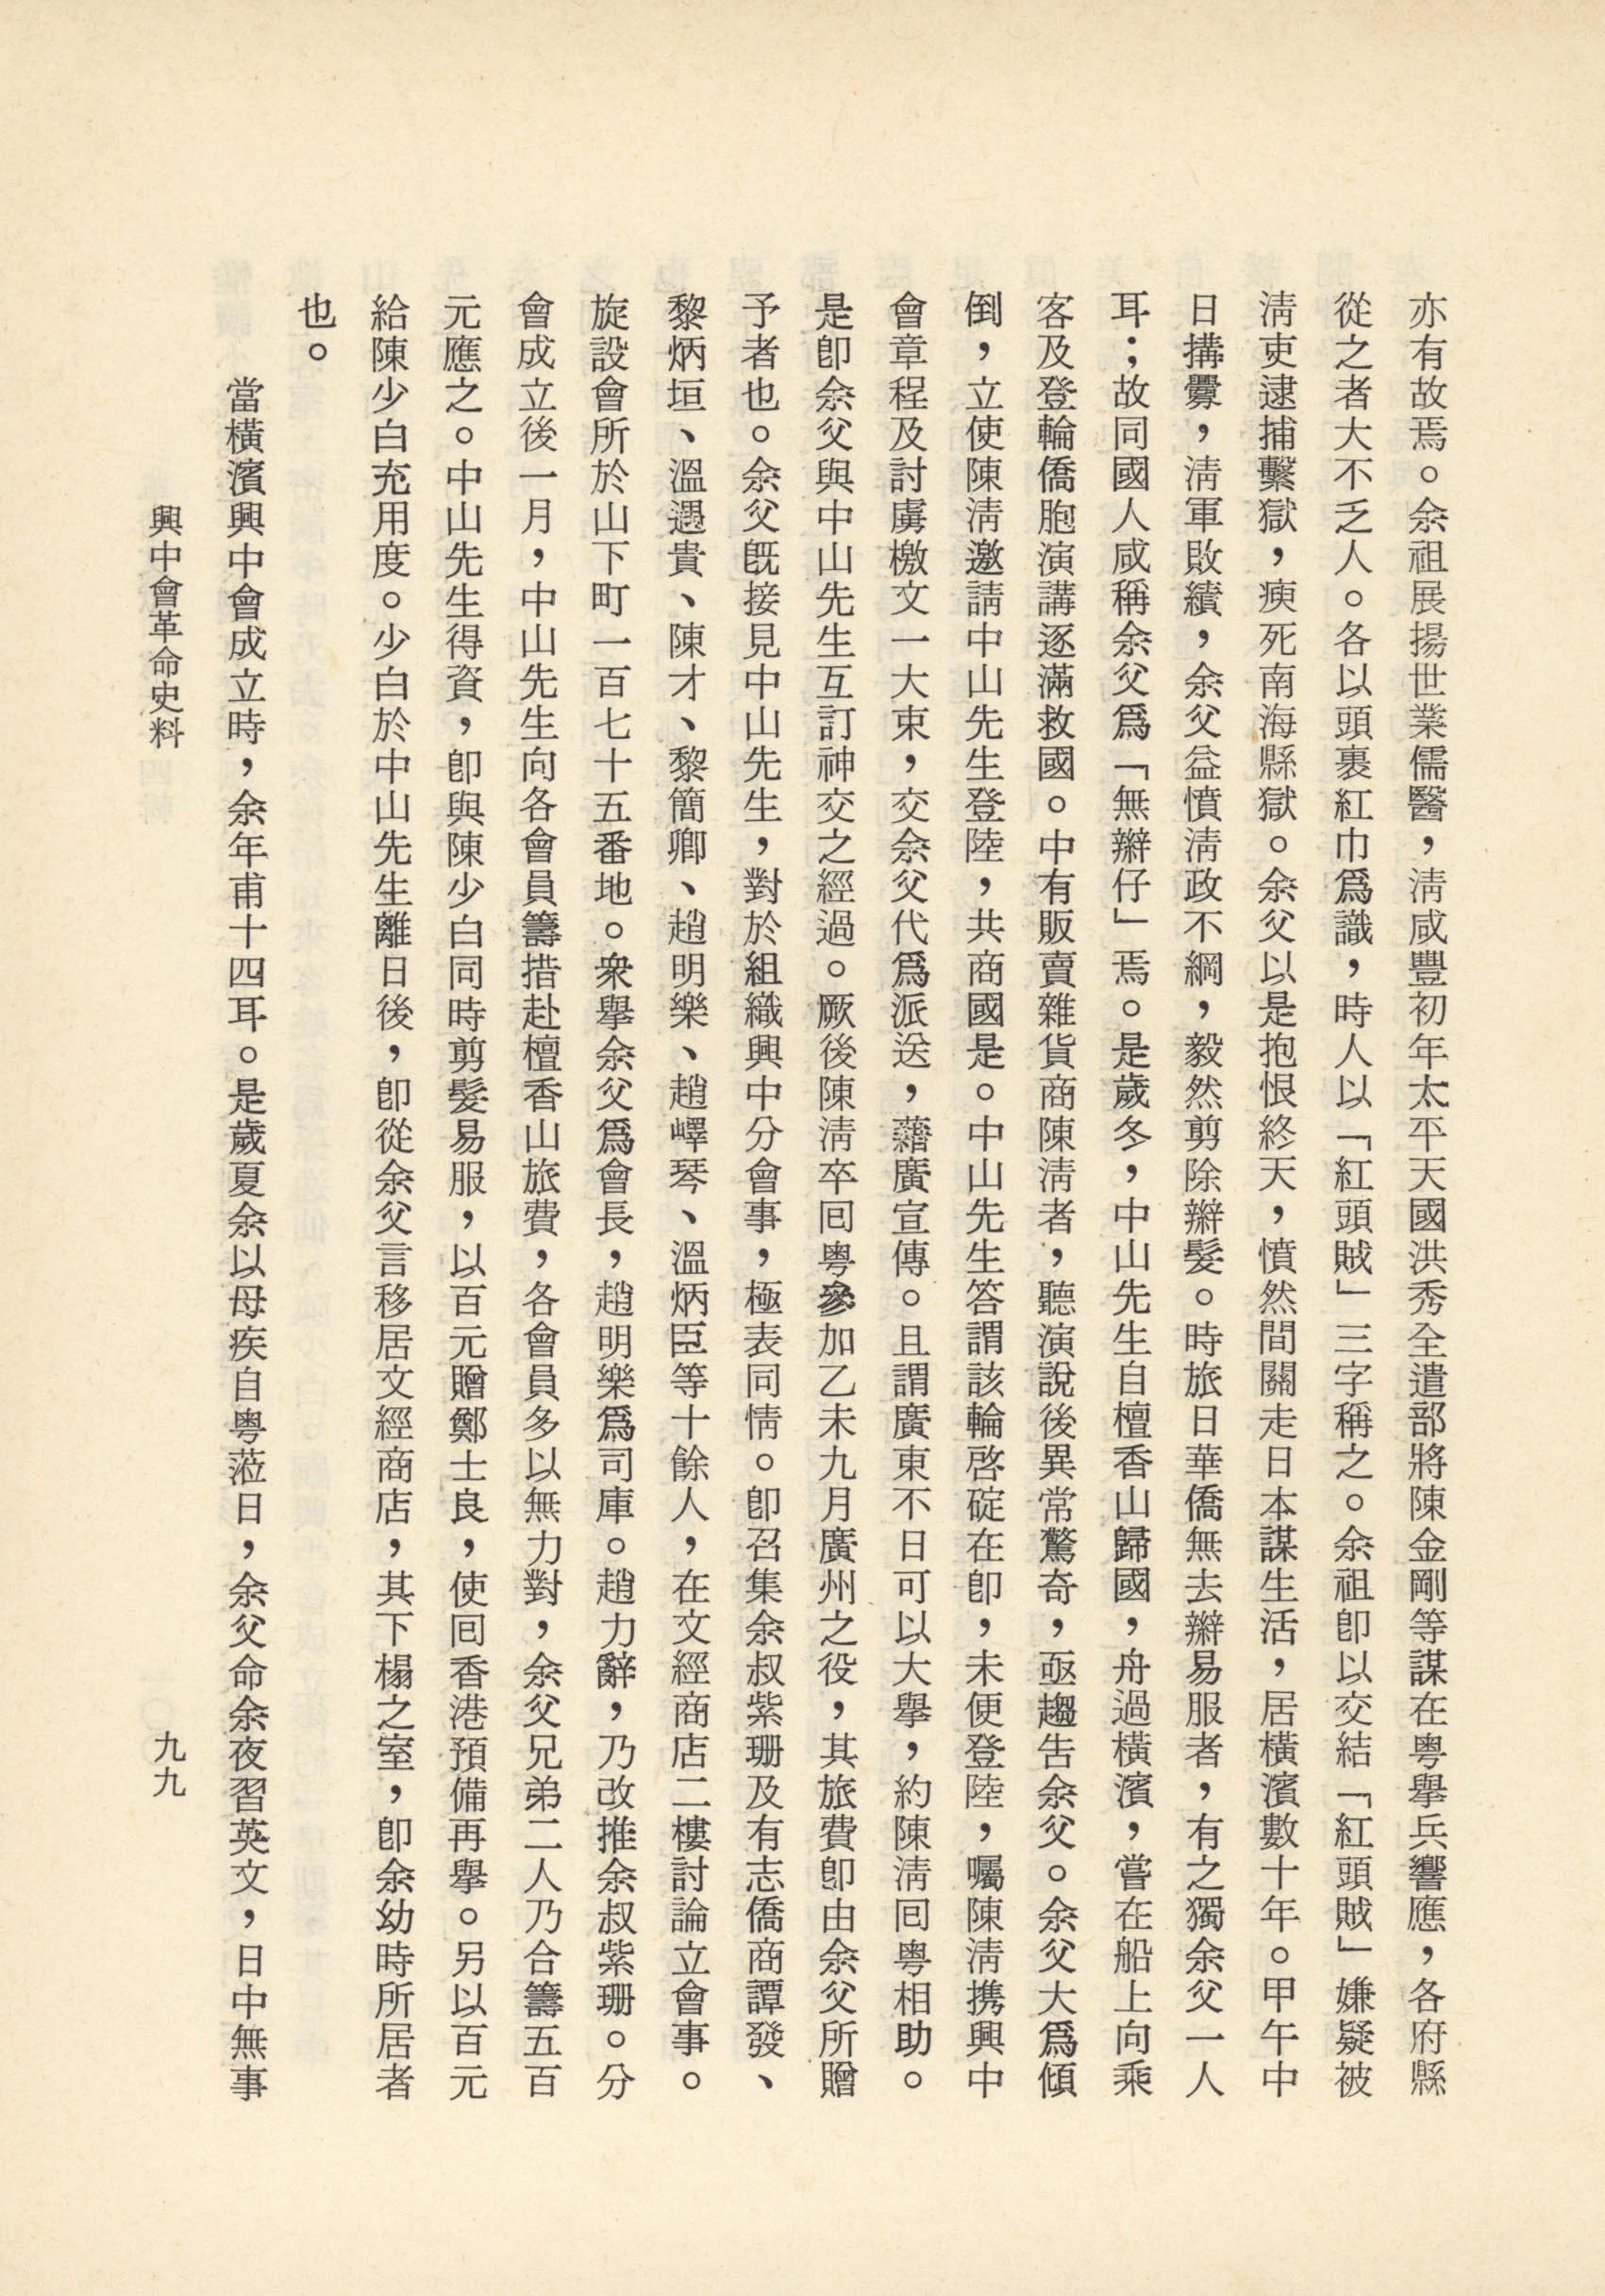 亦有故焉。余祖展揚世業儒醫，淸咸豐初年太平天國洪秀全遣部將陳金剛等謀在粤擧兵響應，各府縣
從之者大不乏人。各以頭裹紅巾爲識，時人以「紅頭賊」三字稱之。余祖卽以交結「紅頭賊」嫌疑被
淸吏逮捕繫獄，瘐死南海縣獄。余父以是抱恨終天，憤然間關走日本謀生活，居橫濱數十年。甲午中
日搆釁，淸軍敗績，余父益憤淸政不綱，毅然剪除辮髮。時旅日華僑無去辮易服者，有之獨余父一人
耳；故同國人咸稱余父爲「無辮仔」焉。是歲冬，中山先生自檀香山歸國，舟過橫濱，嘗在船上向乘
客及登輪僑胞演講逐滿救國。中有販賣雜貨商陳淸者，聽演說後異常驚奇，亟趨吿余父。余父大爲傾
倒，立使陳淸邀請中山先生登陸，共商國是。中山先生答謂該輪啓碇在卽，未便登陸，囑陳淸携興中
會章程及討虜檄文一大束，交余父代爲派送，藉廣宣傳。且謂廣東不日可以大擧，約陳淸囘粤相助。
是卽余父與中山先生互訂神交之經過。厥後陳淸卒囘粤參加乙未九月廣州之役，其旅費卽由余父所贈
予者也。余父旣接見中山先生，對於組織興中分會事，極表同情。卽召集余叔紫珊及有志僑商譚發、
黎炳垣、溫遇貴、陳才、黎簡卿、趙明樂、趙嶧琴、溫炳臣等十餘人，在文經商店二樓討論立會事。
旋設會所於山下町一百七十五番地。衆擧余父爲會長，趙明樂爲司庫。趙力辭，乃改推余叔紫珊。分
會成立後一月，中山先生向各會員籌措赴檀香山旅費，各會員多以無力對，余父兄弟二人乃合籌五百
元應之。中山先生得資，卽與陳少白同時剪髮易服，以百元贈鄭士良，使囘香港預備再擧。另以百元
給陳少白充用度。少白於中山先生離日後，卽從余父言移居文經商店，其下榻之室，卽余幼時所居者
也。
當橫濱興中會成立時，余年甫十四耳。是歲夏余以母疾自粤蒞日，余父命余夜習英文，日中無事
興中會革命史料
九九